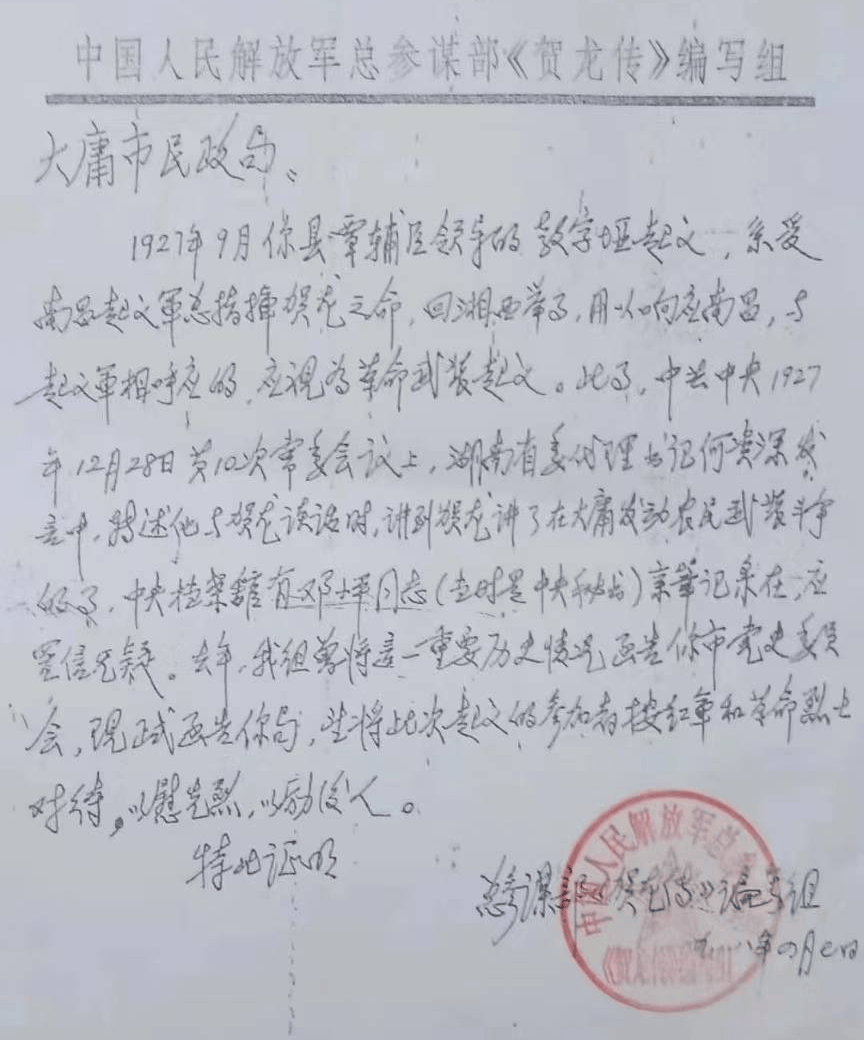 中国人民解放军总参谋部《贺龙传》编写组
大庸市民政局、
1927年9月你县覃辅臣领导的教字垭起义，系受
南昌起义军总指挥贺龙之命，回湘西举事，用以响应南昌，与
起义军相呼应的，应视为革命武装起义。此事，中共中央1927
年12月28日第10次常委会议上，湖南省委代理书记何资深发
言中，转述他与贺龙谈话时，讲到贺龙讲了在大庸发动农民武装斗争
的事，中央档案馆有邓小平同志（当时是中央秘书）亲笔记录在，应
置信无疑。去年，我组曾将这一重要历史情况函告你市党史委员
会，现正式函告你局，望将此次起义的参加者按红军和革命烈士
对待，以慰先烈，以励后人。
特此证明
总参谋部《贺龙传》编写组
八年四月七日
中国人民解放军总
《贺龙传》